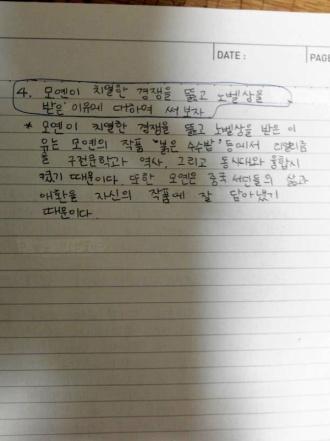 DATE :
PAGE
4. 모옌이 치열한 경쟁을 뚫고 노벨상을
받은 이유에 대하여 써 보자
* 모옌이 치열한 경쟁을 뚫고 노벨상을 받은 이
유는 모옌의 작품 '붉은 수수밭' 등에서 리얼리즘
을 구전문학과 역사, 그리고 동시대와 융합시
켰기 때문이다. 또한 모옌은 중국 서민들의 삶과
애환을 자신의 작품에 잘 담아냈기
때문이다.